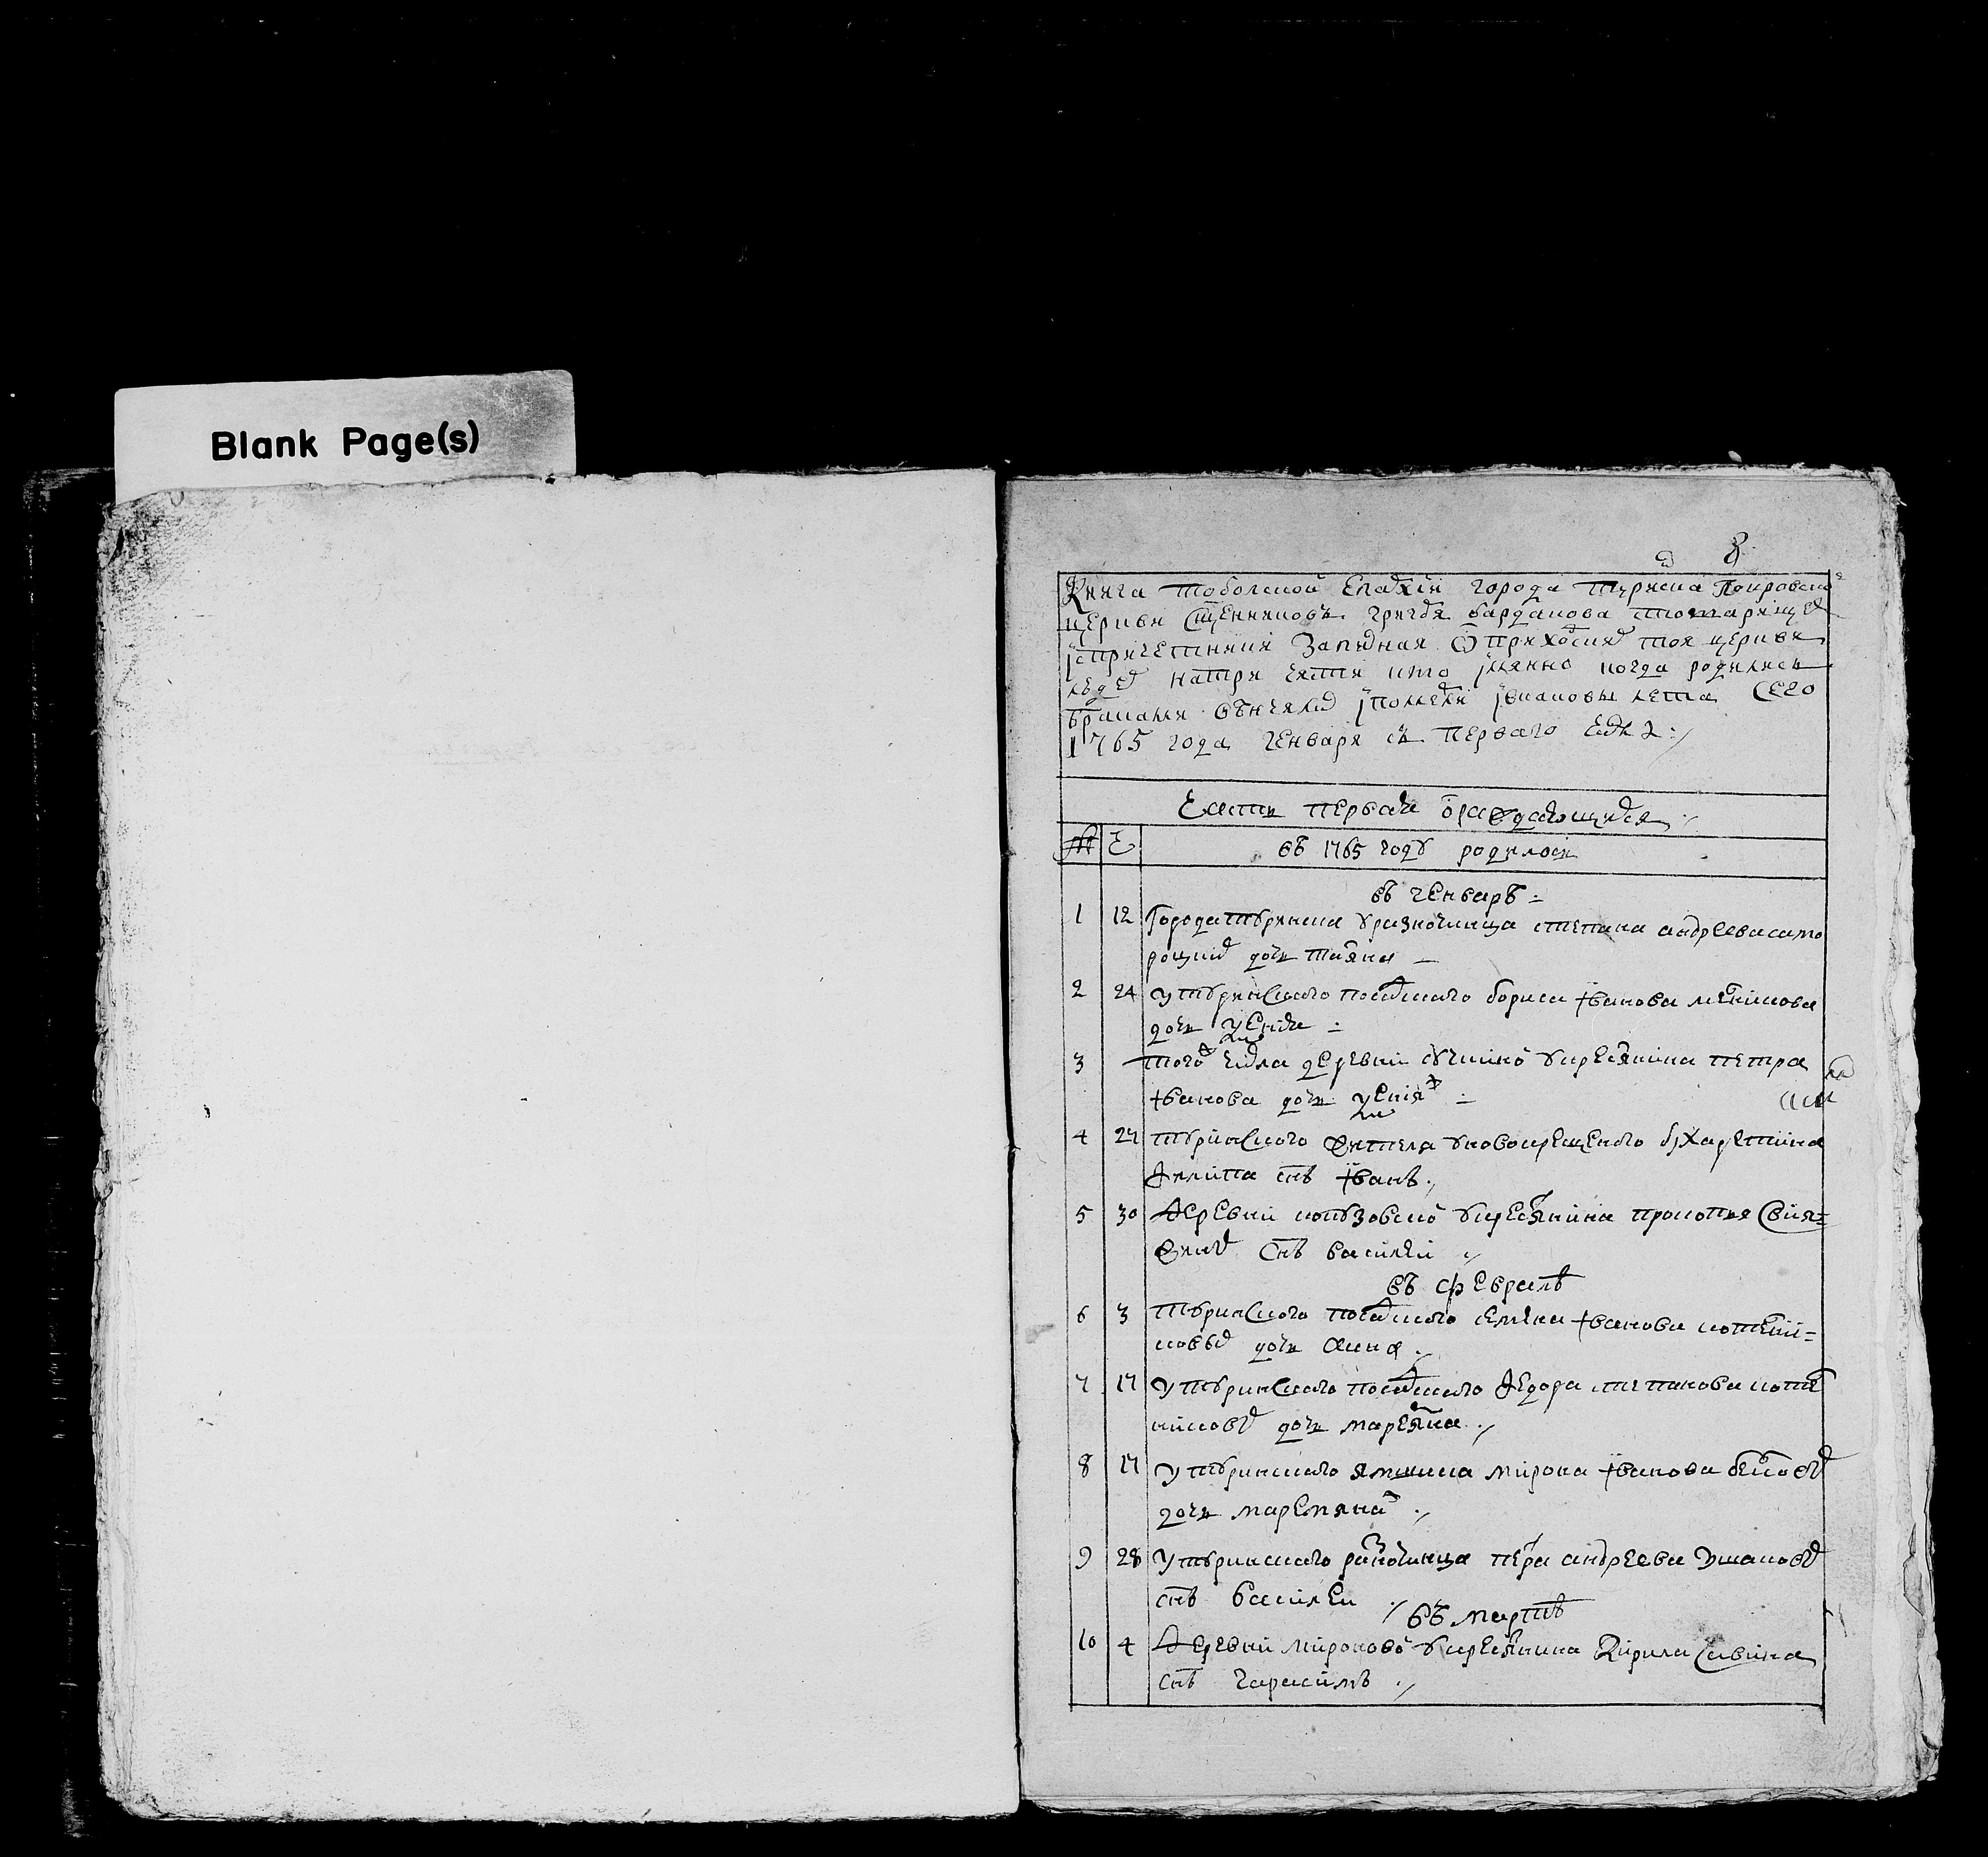 Blank Page(s)
8
Книга тоболской епархїи города туринска покровской
церкви священниковъ григорья барданова стоварищи
їспричетники записная о приходскихъ тоя церкви
людехъ натри части кто їмянно когда родились
браками венчались їпомерли їваковы лета сего
1765 года генваря съ перваго числа
Часть перваня ораждающихся
№ Ч въ 1765 году родилось
въ генварѣ
1 12 Города туринска уразночинца степана андреева само
роцкихъ дочь татияна
2 24 у туринского посадскаго бориса їванова
дочь ксения
3 того числа деревни у крестьянина петра
їванова дочь ксения
4 27 туринского жителя уновокрещеного бухаретина
филипа снъ їванъ
5 30 Деревни копузовской укрестьянина прокопья
снъ василеи
въ февралѣ
6 3 туринского посадского семена їванова котени=
ковыхъ дочь анна
7 17 у туринского посадскаго федора степанова коте
никовыхъ дочь маремяна
8 17 у туринскаго ямщика мирона їванова
дочь маремяна
9 28 у туринскаго разночинца петра андреева ушаковыхъ
снъ василеи
въ мартѣ
10 4 Деревни мироновой укрестьянина кирила савина
снъ гарасимъ